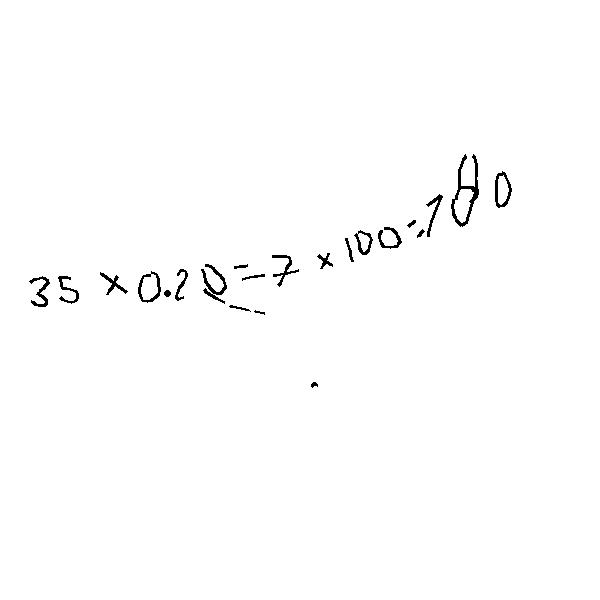 35 × 0.20 = 7 × 100 = 700